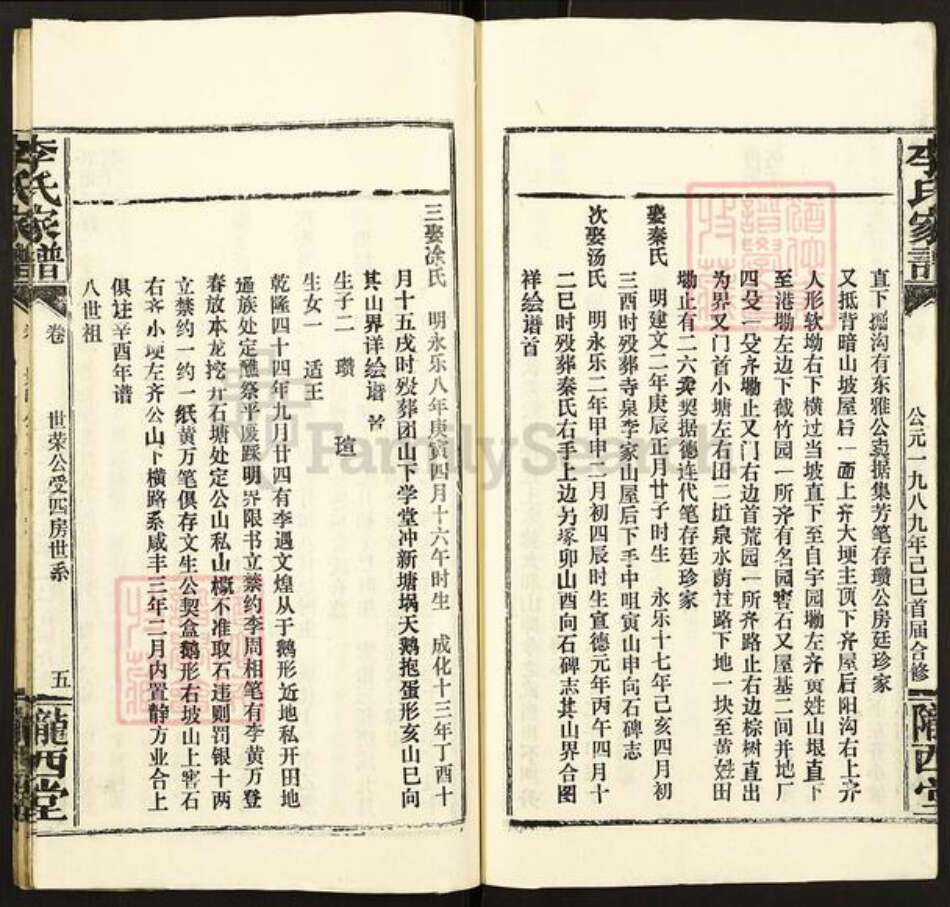 李氏家谱
公元一九八九年己巳首届合修
陇西堂
直下堀沟有东雅公卖据集芳笔存瓒公房廷珍家
又抵背暗山坡屋后一面上齐大埂主顶下齐屋后阳沟右上齐
人形软坳右下横过当坡直下至自宇园塝左齐黄姓山垠直下
至港塝左边下截竹园一所齐有名园窖石又屋基二间并地厂
四殳一殳齐塝止又门右边首荒园一所齐路止右边棕树直出
为界又门首小塘左右田二坵泉水荫注路下地一块至黄姓田
塝止有二六卖契据德连代笔存廷珍家
娶秦氏 明建文二年庚辰正月廿子时生 永乐十七年己亥四月初
三酉时殁葬寺泉李家山屋后下手中咀寅山申向石碑志
次娶汤氏 明永乐二年甲申二月初四辰时生宣德元年丙午四月十
二巳时殁葬秦氏右手上边另塚卯山酉向石碑志其山界合图
祥绘谱首
三娶涂氏 明永乐八年庚寅四月十六午时生 成化十三年丁酉十
月十五戌时殁葬团山下学堂冲新塘埚天鹅抱蛋形亥山巳向
其山界详绘谱首
生子二 瓒 瑄
生女一 适王
乾隆四十四年九月廿四有李遇文煌从于鹅形近地私开田地
通族处定醮祭平废踩明界限书立禁约李周相笔有李黄万登
春放本龙挖井石塘处定公山私山概不准取石违则罚银十两
立禁约一约一纸黄万笔俱存文生公契盒鹅形右坡山上窖石
右齐小埂左齐公山下横路系咸丰三年二月内置静方业合上
俱注辛酉年谱
八世祖
李氏家谱
卷
世荣公受四房世系
五
陇西堂
FamilySearch